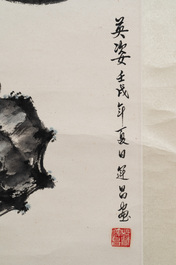 英姿壬戌年夏日运昌画